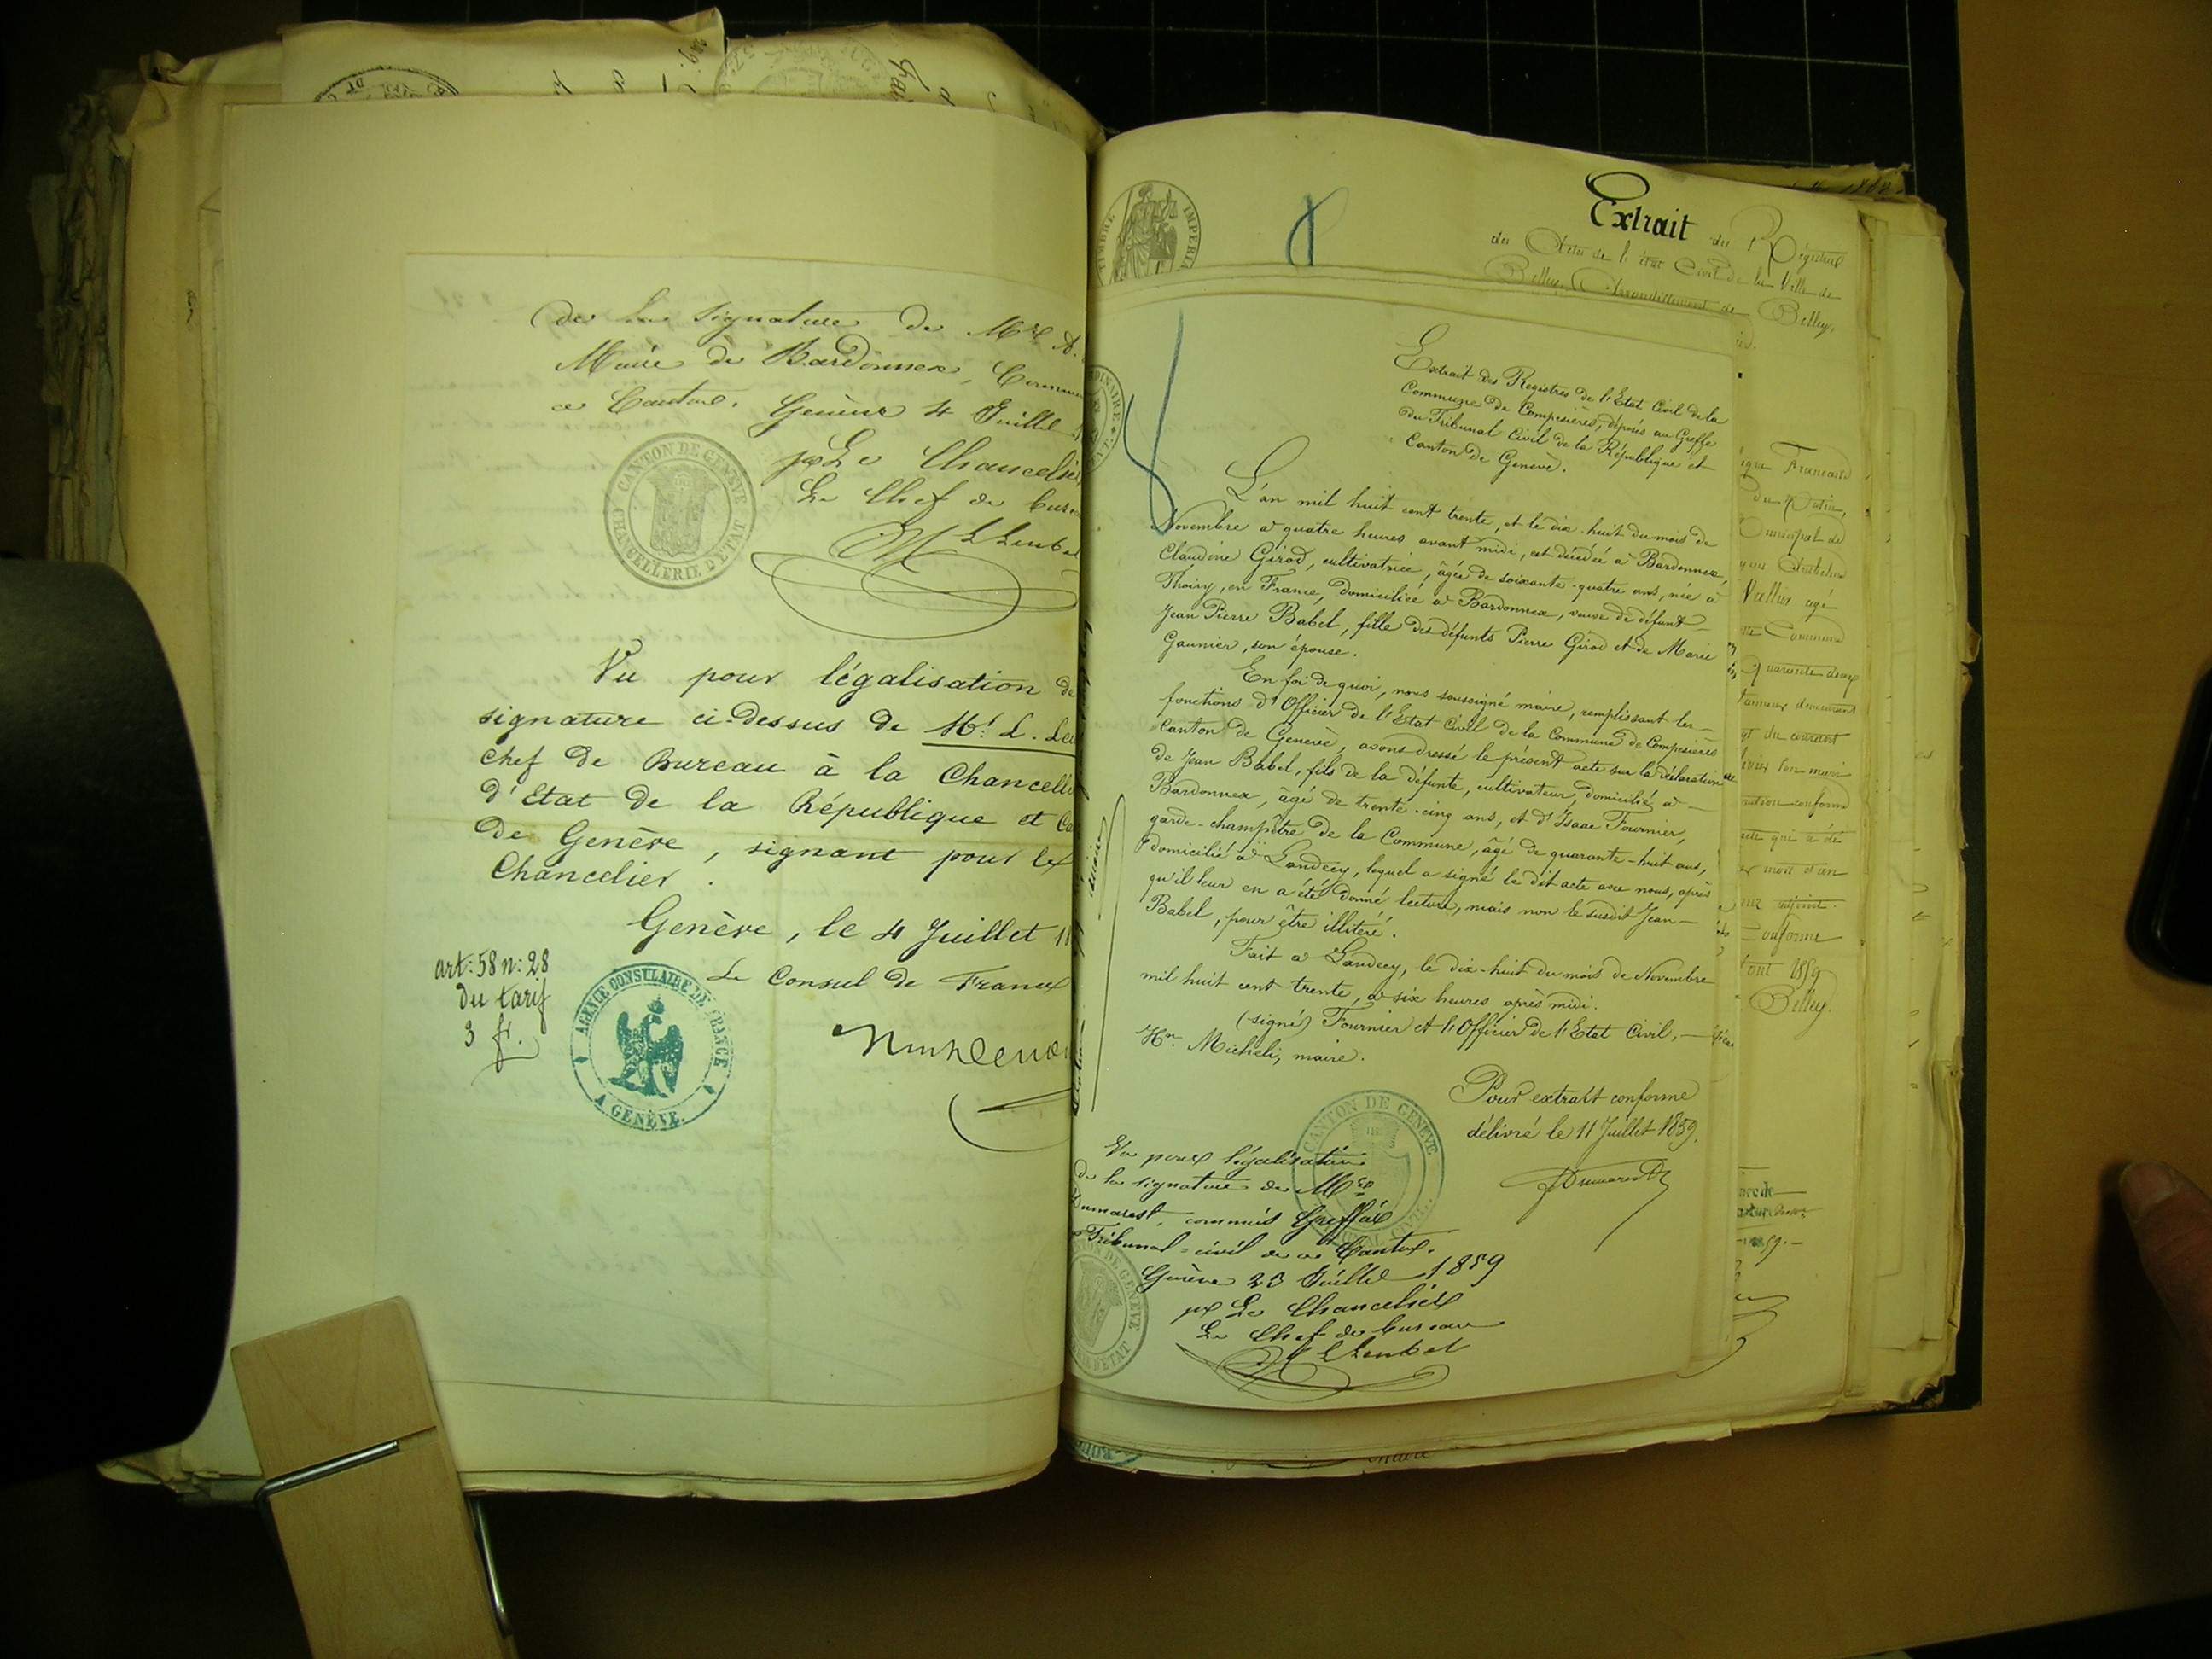 de la signature de Mr A.
Maire de Bardonnex, Commune
ce Canton. Genève 4 Juillet
pr Le Chancelier
Le Chef de bureau
CANTON DE GENEVE
CHANCELLERIE D'ETAT
Vu pour légalisation de
signature ci-dessus de Mr. L. Leu
chef de Bureau à la Chancell
d'Etat de la République et Ca
de Genève, signant pour le
Chancelier.
Genève, le 4 Juillet 1
Le Consul de France
art: 58 n: 28
du tarif
3 fr.
AGENCE CONSULAIRE DE FRANCE
A GENÈVE.
TIMBRE IMPERIA
Extrait du Régistre
des Actes de l'état Civil de la Ville de
Belley, Arrondissement de Belley.
Extrait des Registres de l'Etat Civil de la
Commune de Compesières, déposés au Greffe
du Tribunal Civil de la République et
Canton de Genève.
L'an mil huit cent trente, et le dix-huit du mois de
Novembre à quatre heures avant midi, est décédée à Bardonnex,
Claudine Girod, cultivatrice, âgée de soixante-quatre ans, née à
Thoiry, en France, domiciliée à Bardonnex, veuve de défunt
Jean Pierre Babel, fille des défunts Pierre Girod et de Marie
Gaunier, son épouse.
En foi de quoi, nous soussigné maire, remplissant les
fonctions d'Officier de l'Etat Civil de la Commune de Compesières
Canton de Genève, avons dressé le présent acte sur la déclaration
de Jean Babel, fils de la défunte, cultivateur, domicilié à
Bardonnex, âgé de trente-cinq ans, et d'Isaac Fournier,
garde-champêtre de la Commune, âgé de quarante-huit ans,
domicilié à Landecy, lequel a signé le dit acte avec nous, après
qu'il leur en a été donné lecture, mais non le susdit Jean
Babel, pour être illitéré.
Fait à Landecy, le dix-huit du mois de Novembre
mil huit cent trente, à six heures après midi.
(signé) Fournier et l'Officier de l'Etat Civil,
Hri. Micheli, maire.
Pour extrait conforme
délivré le 11 Juillet 1859.
JDumarest
CANTON DE GENEVE
CIVIL
Vu pour légalisation
de la signature de Mr
Dumarest, commis Greffier
Tribunal-civil de ce Canton.
Genève 23 Juillet 1859
pr Le Chancelier
Le Chef de bureau
CANTON DE GENEVE
Français
du matin,
Municipal de
Vallier agé
Commune
Quarante deux
demeurant
du courant
son mari
conforme
acte qui a été
mort d'un
adjoint.
Conforme
1859
Belley.